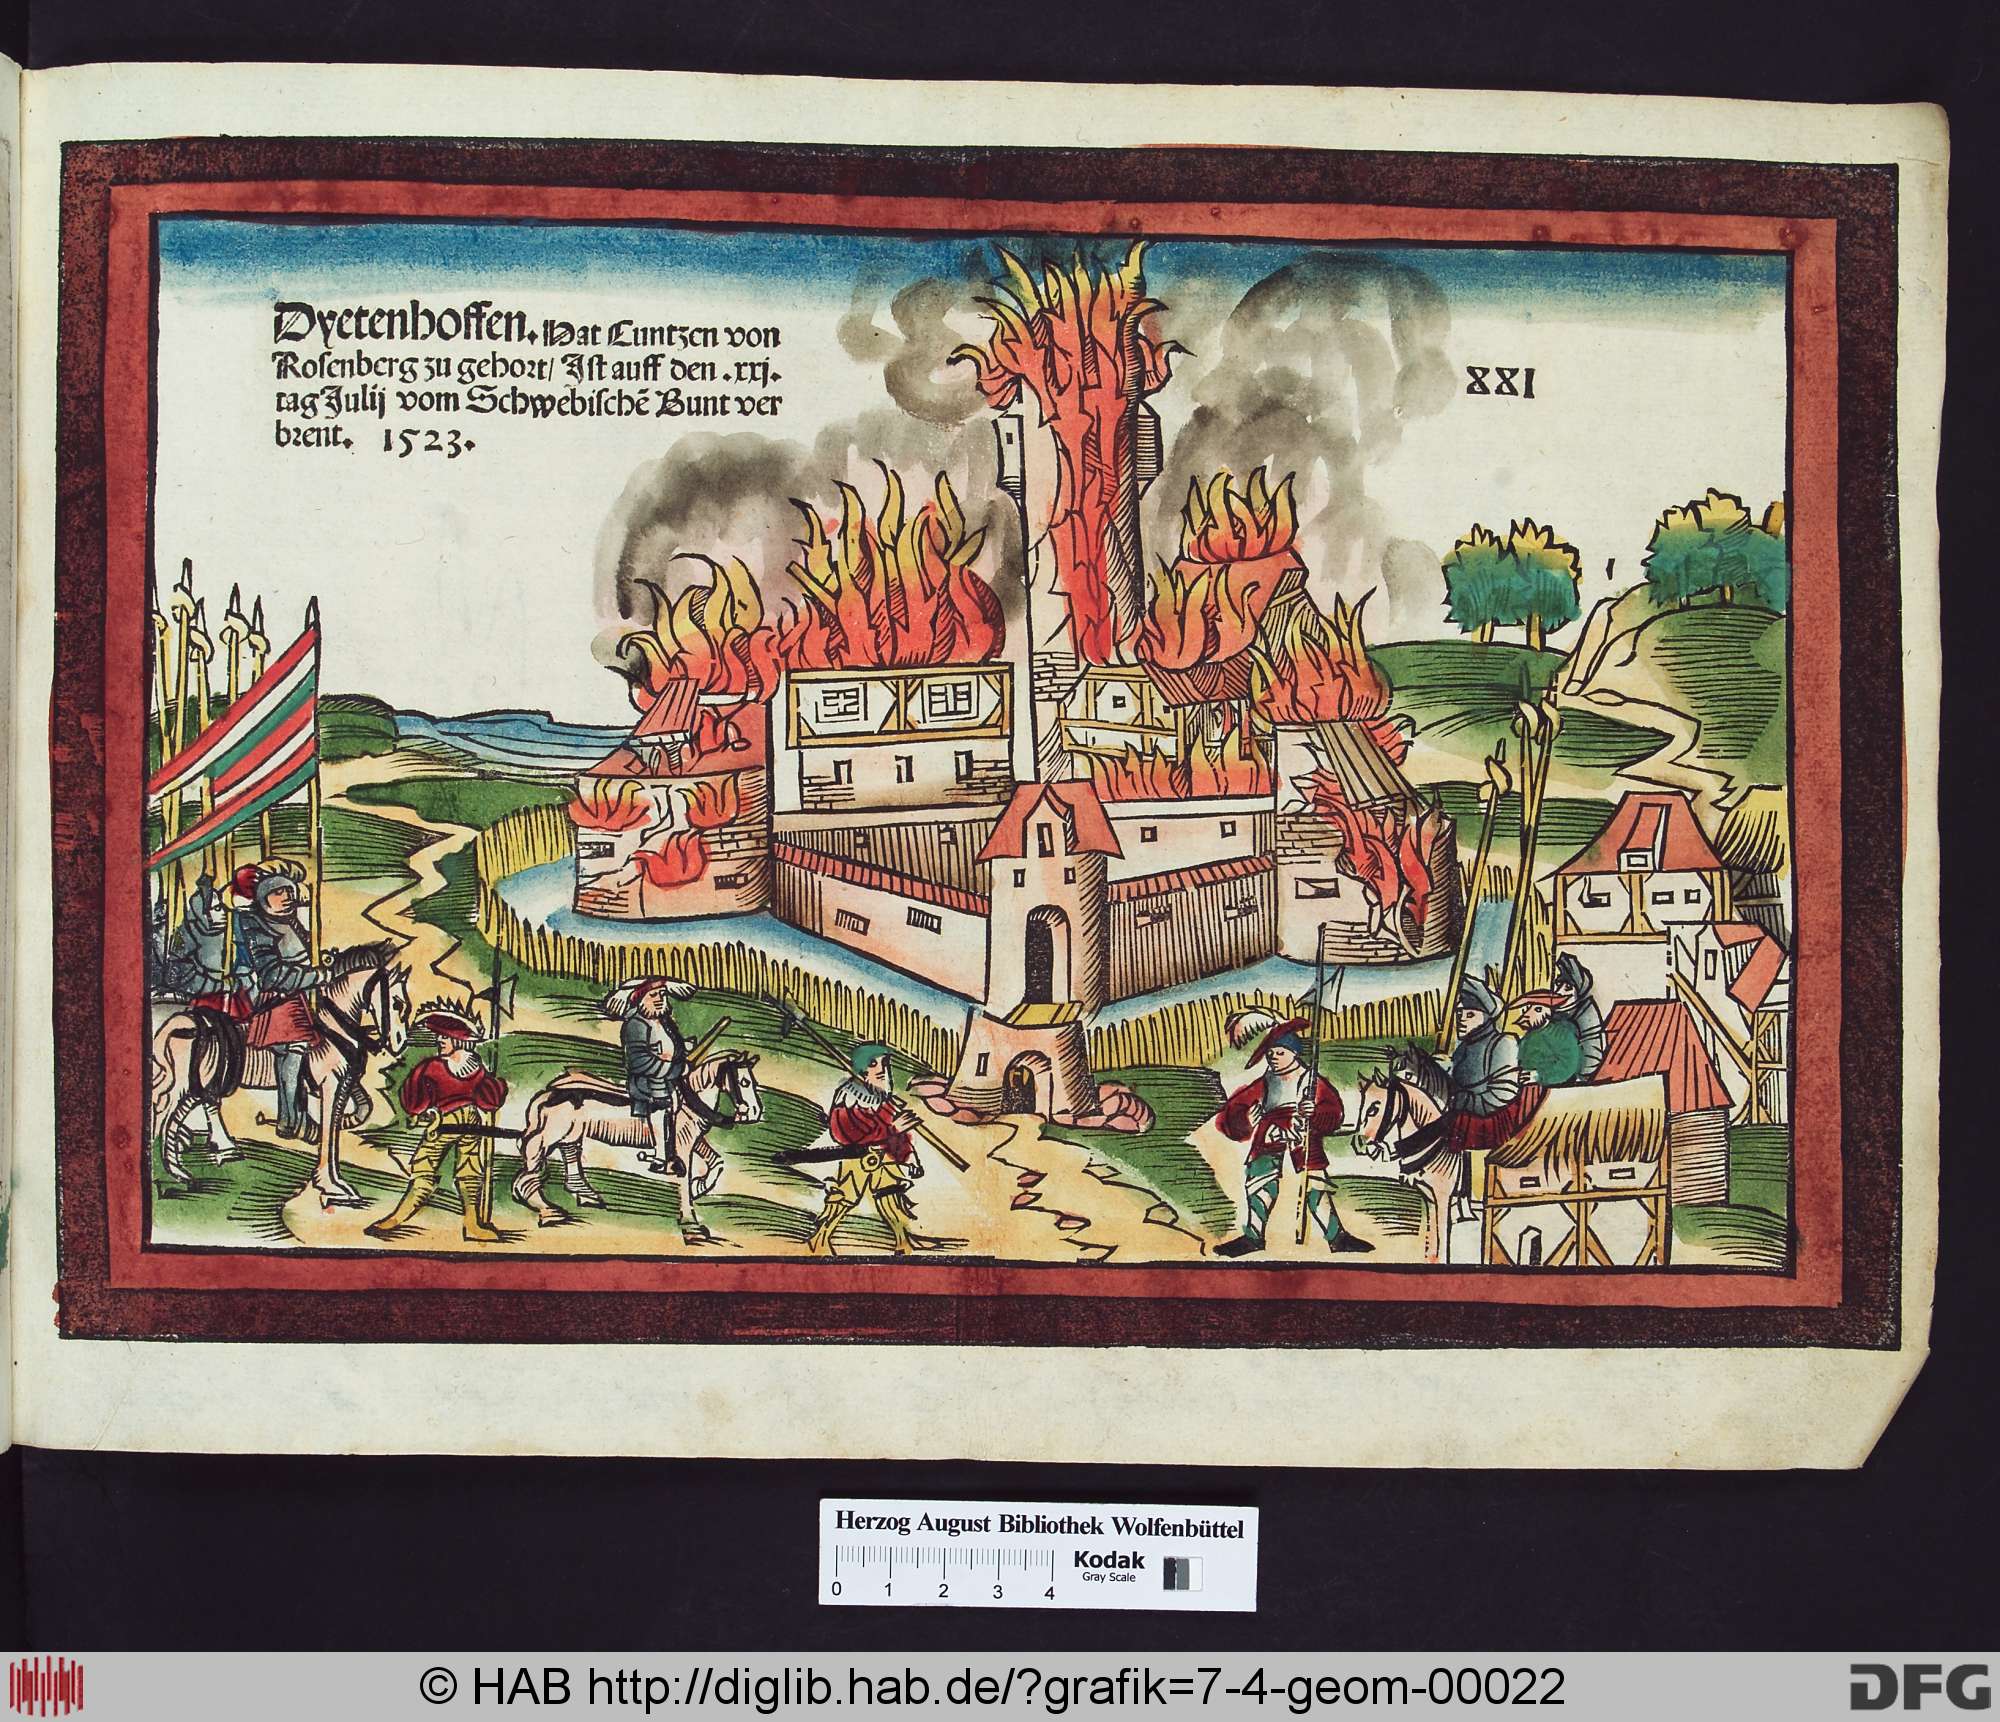 Dyetenhoffen. Hat Cuntzen von
Rosenberg zu gehort/ Ist auff den .xxj.
tag Julij vom Schwebischē Bunt ver
brent. 1523.
XXI
Herzog August Bibliothek Wolfenbüttel
Kodak
Gray Scale
0 1 2 3 4
© HAB http://diglib.hab.de/?grafik=7-4-geom-00022
DFG